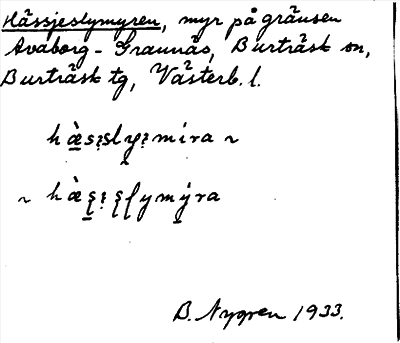 Hässjeslymyren, myr på gränsen
Avaborg - Graunäs, Burträsk sn,
Burträsk tg, Västerb. l.
hæ̀sɂsly̨ɂmira ~
~ hæ̀ʂɂʂly mýra
B. Nygren 1933.